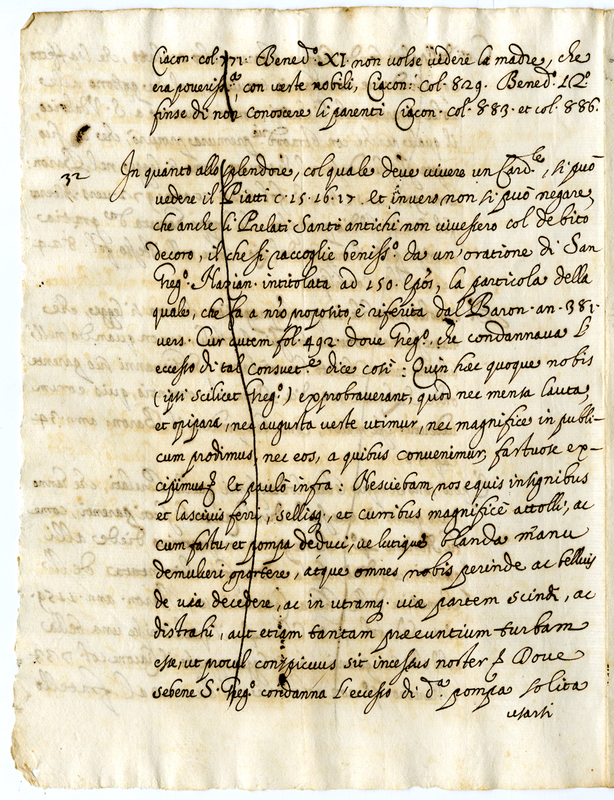 Ciacon. col. 771. Bened.º XI. non volse vedere la madre, che
era poveriss.ª con veste nobili, Ciacon: col. 829. Bened. 12.º
finse di non conoscere li parenti Ciacon. col. 883. et col. 886.
32 In quanto allo splendore, col quale deve vivere un Card.le, si può
vedere il Piatti c. 15. 16. 17. et invero non si può negare,
che anche li Prelati Santi antichi non vivessero col debito
decoro, il che si raccoglie beniss.º da un'oratione di San
Greg.º Nazian. intitolata ad 150. Epõs, la particola della
quale, che fa a nr̃o proposito, è riferita dal Baron. an. 381.
vers. Cur autem fol. 492. dove Greg.º, che condannava l'
eccesso di tal consuet.e dice così: Quin hæc quoque nobis
(ipsi scilicet Greg.º) exprobraverant, quod nec mensa lauta,
et opipara, nec augusta veste utimur, nec magnifice in publi-
cum prodimus, nec eos, a quibus convenimur, fastuose ex-
cipimus Et paulò infra: Nesciebam nos equis insignibus
et lascivis ferri, sellisq., et curribus magnificè attolli, ac
cum fastu, et pompa deduci, ve lutique blanda manu
demulceri oportere, atque omnes nobis perinde ac belluis
de via decedere, ac in utramq. viæ partem scindi, ac
distrahi, aut etiam tantam præeuntium turbam
esse, ut procul conspicuus sit incessus noster Dove
sebene S. Greg.º condanna l'eccesso di d.ª pompa solita
usarsi